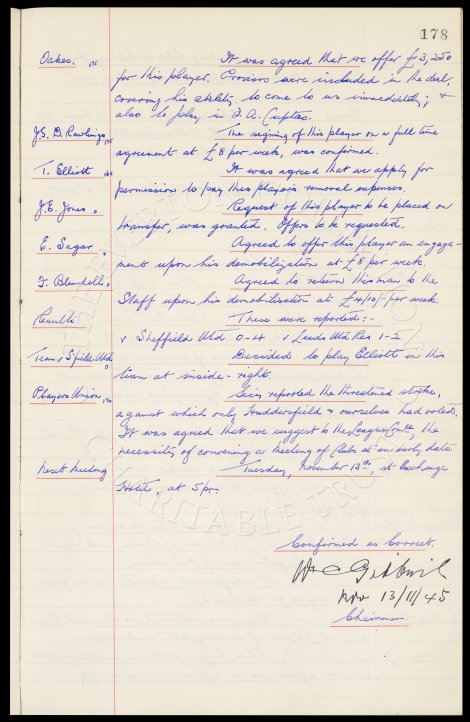 178
Oakes. 176 It was agreed that we offer £3,250
for this player. Provisors were included in the deal,
covering his ability to come to us immediately; &
also to play in F.A. Cupties.
J.S. D. Rawlings 175 The signing of this player on a full time
agreement at £8 per week, was confirmed.
T. Elliott It was agreed that we apply for
permission to pay this player's removal expenses.
J.E. Jones. Request of this player to be placed on
transfer, was granted. Offers to be requested.
E. Sagar Agreed to offer this player an engage-
ment upon his demobilization at £8 per week
J. Blundell Agreed to return this man to the
Staff upon his demobilisation at £4/10/- per week.
Results These were reported:-
v Sheffield Utd 0-4 v Leeds Utd Res 1-2
Team v S'field Utd Decided to play Elliott in this
team at inside-right.
Players Union Secy reported the threatened strike,
against which only Huddersfield & ourselves had voted.
It was agreed that we suggest to the League Comtee, the
necessity of convening a meeting of Clubs at an early date.
Next Meeting Tuesday, November 13th, at Exchange
Hotel, at 5pm
Confirmed as Correct.
Nov 13/11/45
Chairman.
THE EVERTON
CHARITABLE TRUST